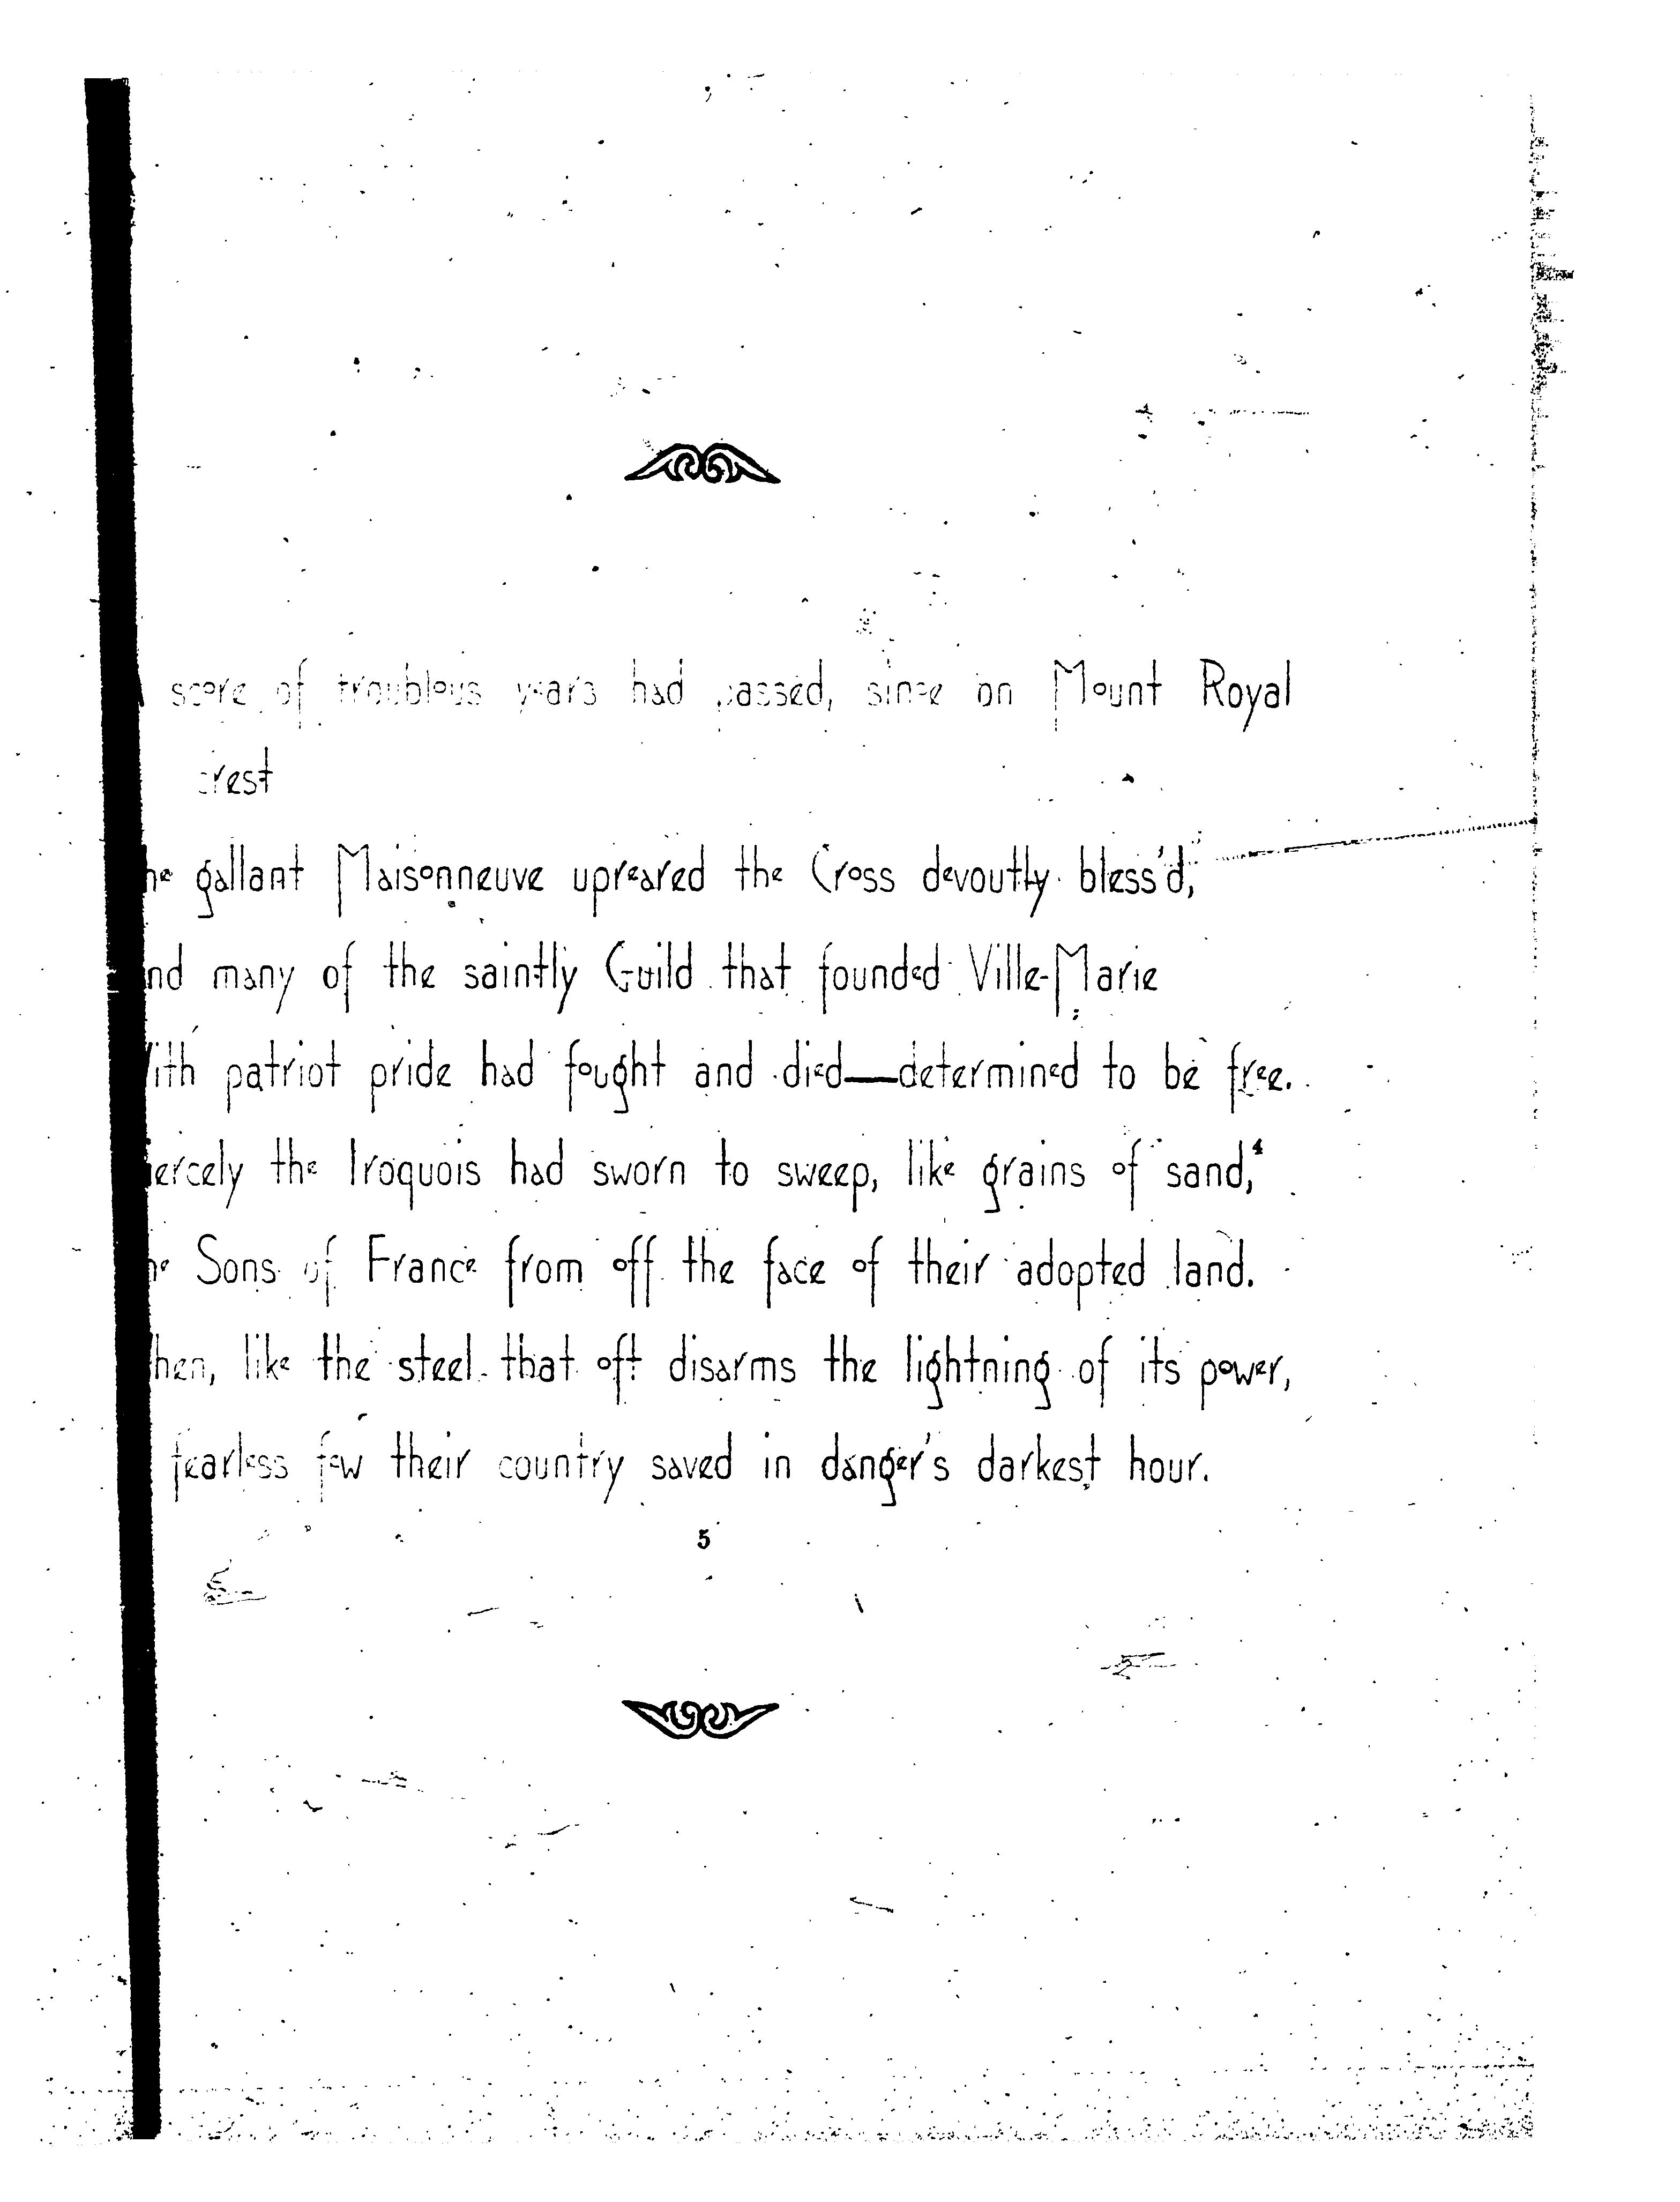 score of troublous years had passed, since on Mount Royal
crest
he gallant Maisonneuve upreared the Cross devoutly bless'd,
nd many of the saintly Guild that founded Ville-Marie
ith patriot pride had fought and died—determined to be free.
iercely the Iroquois had sworn to sweep, like grains of sand,
he Sons of France from off the face of their adopted land.
hen, like the steel that oft disarms the lightning of its power,
fearless few their country saved in danger's darkest hour.
5